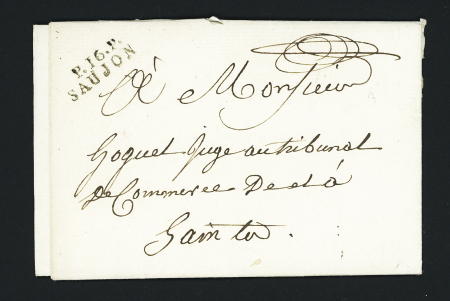 P.16.P.
SAUJON
A Monsieur
Goguet Juge au tribunal
De Commerce De et à
Sainte.